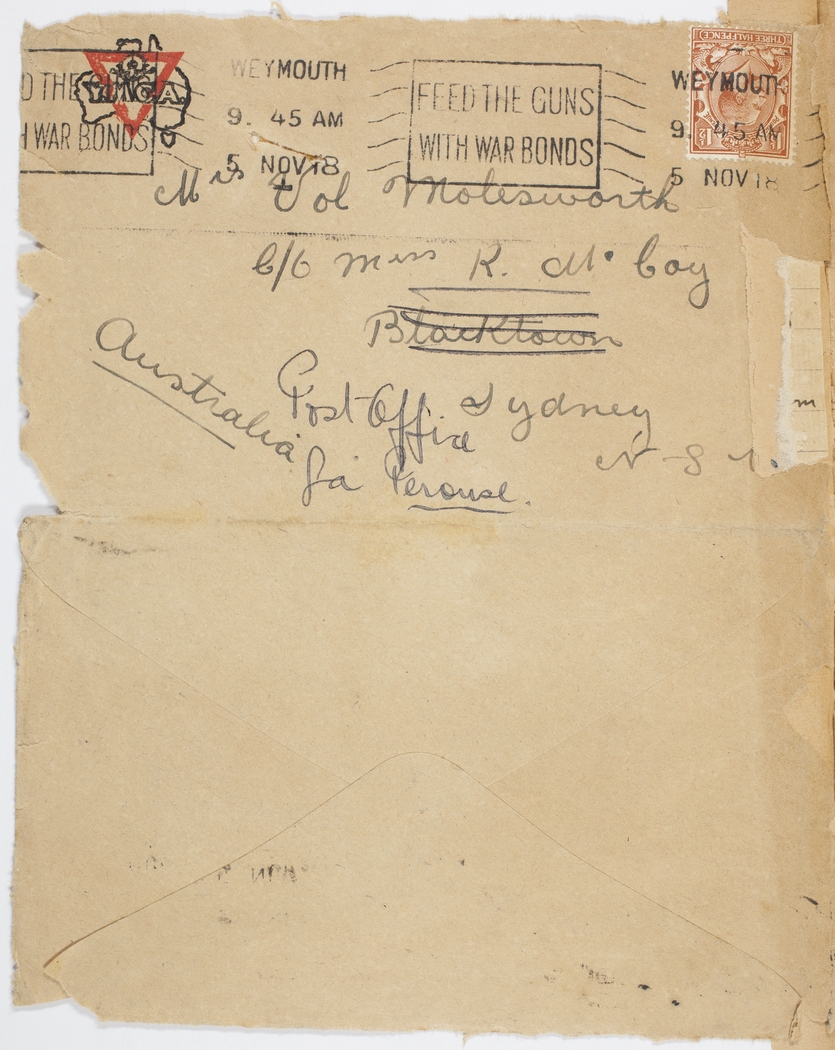 THREE HALFPENCE
YMCA
D THE GUNS
H WAR BONDS
WEYMOUTH
9. 45 AM
5 NOV 18
FEED THE GUNS
WITH WAR BONDS
WEYMOUTH
9. 45 AM
5 NOV 18
Mrs Vol Molesworth
C/o Miss K. Mc Coy
Blacktown
Australia
Post Office
Sydney
La Perouse.
N S
m